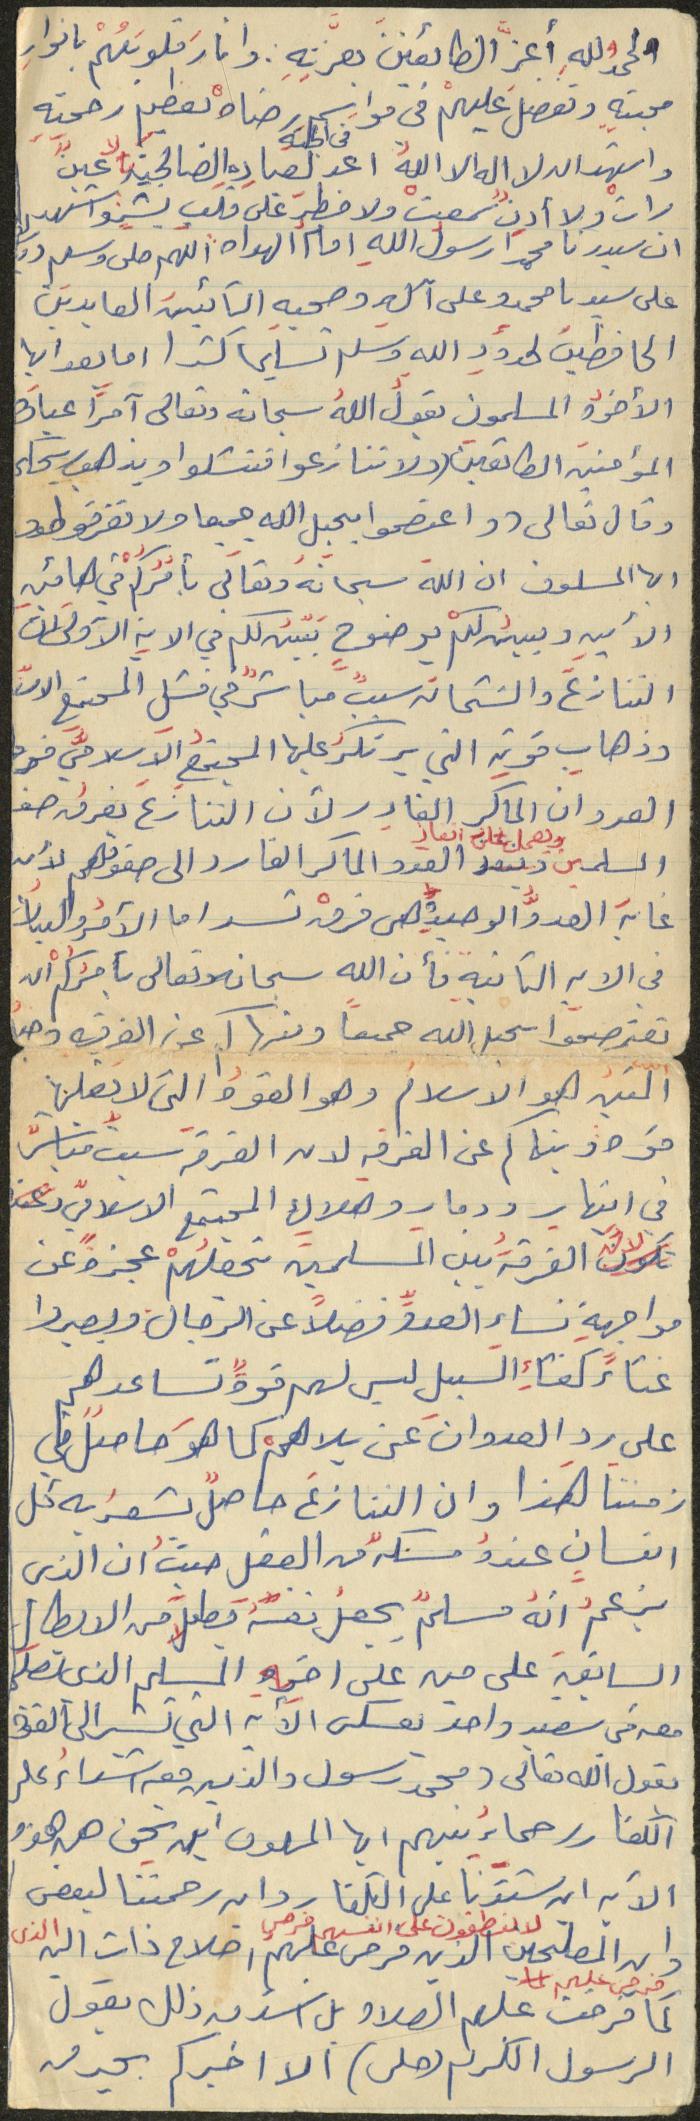 الحمد لله أعز الطائعين بعزته. وانار قلوبهم بانوار
محبته وتفضل عليهم في مواسم رضاه بعظيم رحمته
واشهد ان لا اله الا الله اعد لعباده الصالحين في الجنة مالا عين
رات ولا أذن سمعت ولا خطر على قلب بشر واشهد
ان سيدنا محمدا رسول الله امام الهداه اللهم صلى وسلم
على سيدنا محمد وعلى آله وصحبه التائبين العابدين
الحافظين لحدود الله وسلم تسليما كثيرا اما بعد ايها
الأخوة المسلمون يقول الله سبحانه وتعالى آمرا عباده
المؤمنين الطائعين (ولا تنازعوا فتفشلوا وتذهب ريحكم
وقال تعالى (واعتصموا بحبل الله جميعا ولا تفرقوا
ايها المسلمون ان الله سبحانه وتعالى يأمركم في هاتين
الأيتين ويبين لكم بوضوح تبين لكم في الاية الاولى ان
التنازع والشحناء سبب مباشر في فشل المجتمع
وذهاب قوته التي يرتكز عليها المجتمع الاسلامي
العدوان الماكر الغادر لأن التنازع يفرق صف
المسلمين ويعمل على انفاذ العدو الماكر الغادر الى صفوفهم لأن
غاية العدو الوحيدة هي فرق تسد اما الأمر
في الايه الثانية فأن الله سبحانه وتعالى يأمركم ان
تعتصموا بحبل الله جميعا وينهاكم عن الفرقه وحبل
المتين هو الاسلام وهو القوة التى لا تغلبها
قوه وينهاكم عن الفرقه لان الفرقة سبب مباشر
في انهيار ودمار وهلاك المجتمع الاسلامي
لان الفرقة بين المسلمين تجعلهم عجزة عن
مواجهة نساء العدو فضلا عن الرجال ويصبروا
غثاء كغثاء السيل ليس لهم قوة تساعدهم
على رد العدوان عن بلادهم كما هو حاصل في
زمننا هذا وان التنازع حاصل يشعر به كل
انسان عنده مسكة من العقل حيث ان الذى
يزعم انه مسلم يجعل نفسه بطلا من الابطال
السابقين على من على اخيه المسلم الذى
معه في صعيد واحد بعكس الآيه التي تشير الى القوة
يقول الله تعالى (محمد رسول والذين معه اشداء على
الكفار رحماء بينهم ايها المسلمون اين نحن من هذه
الآيه اين شدتنا على الكفار واين رحمتنا لبعض
واين المصلحين الذين فرض عليهم اصلاح ذات البين الذى
لا ينطقون على انفسهم فرض
فرض عليهم
كما فرضت عليهم الصلاه بل اشد من ذلك يقول
الرسول الكريم (صلى) ألا اخبركم بخير من